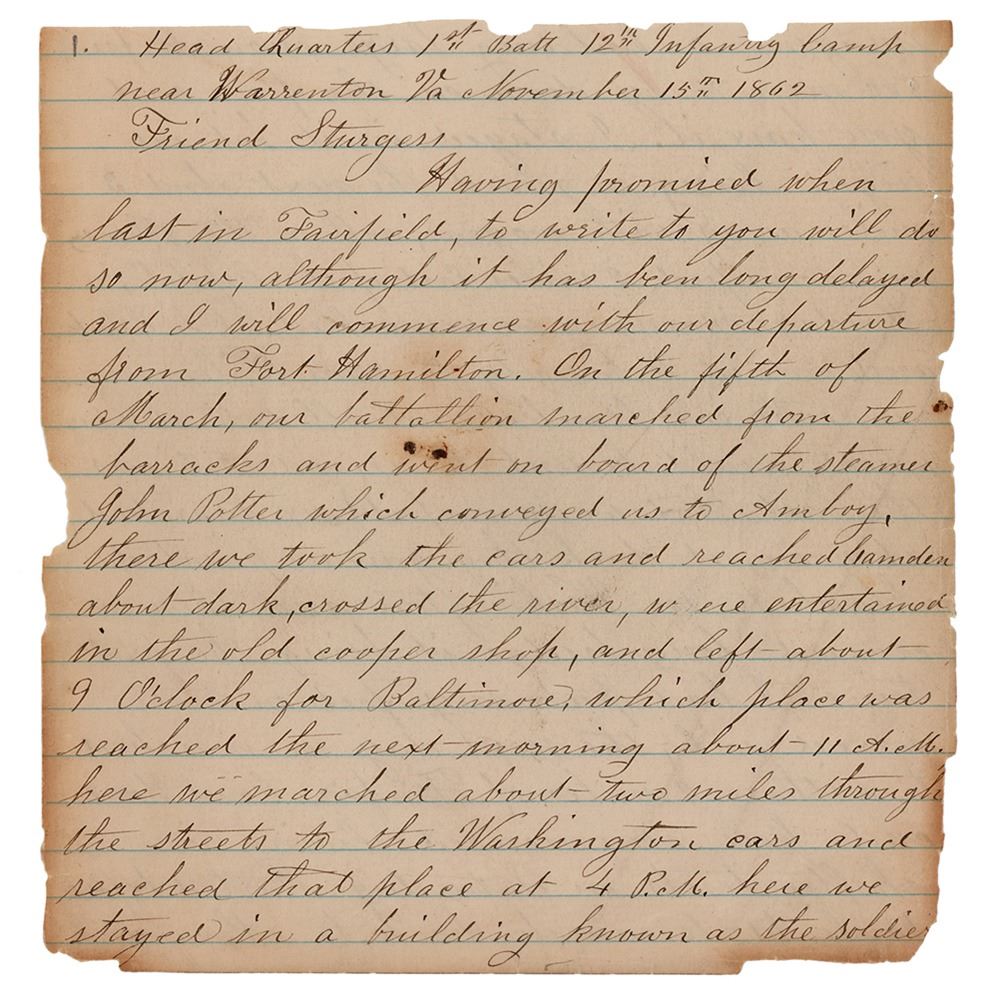 1. Head Quarters 1st Batt 12th Infantry Camp
near Warrenton Va November 15th 1862
Friend Sturgess
Having promised when
last in Fairfield, to write to you will do
so now, although it has been long delayed
and I will commence with our departure
from Fort Hamilton. On the fifth of
March, our battallion marched from the
barracks and went on board of the steamer
John Potter which conveyed us to Amboy,
there we took the cars and reached Camden
about dark, crossed the river, were entertained
in the old cooper shop, and left about
9 O'clock for Baltimore, which place was
reached the next morning about 11 A.M.
here we marched about two miles through
the streets to the Washington cars and
reached that place at 4 P.M. here we
stayed in a building known as the soldier